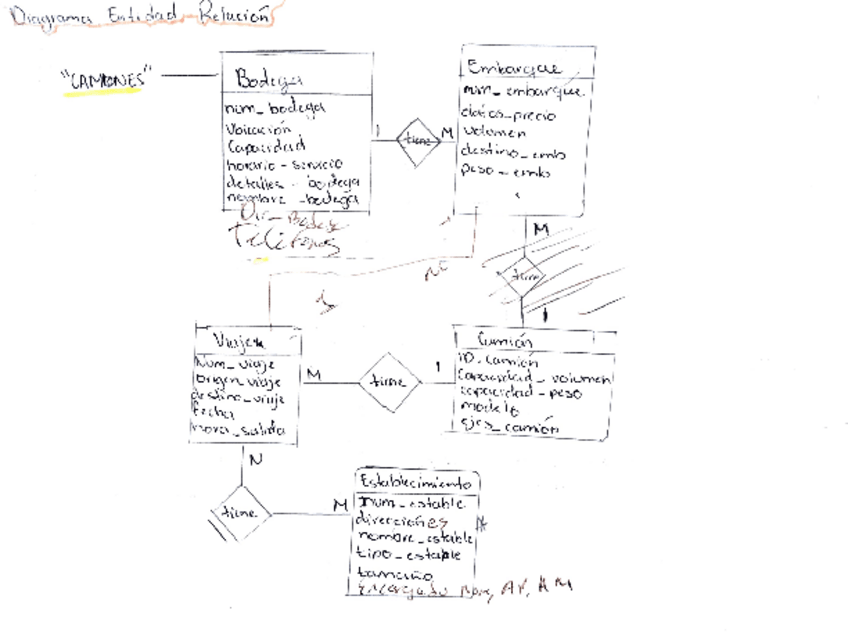 Diagrama Entidad Relación
"CAMIONES"
Bodega
num_bodega
Ubicación
Capacidad
horario - servicio
detalles - bodega
nombre _bodega
Dir_Bodega
Teléfonos
1
tiene
M
Embarque
num_embarque
datos_precio
volumen
destino_emb
peso_emb
M
tiene
1
Viaje
Num_viaje
origen_viaje
destino_viaje
fecha
hora_salida
M
tiene
1
Camión
ID_camión
Capacidad_volumen
capacidad - peso
modelo
ejes_camión
N
tiene
M
Establecimiento
num_estable
direcciones *
nombre_estable
tipo_estable
tamaño
Encargado Nom, AP, AM